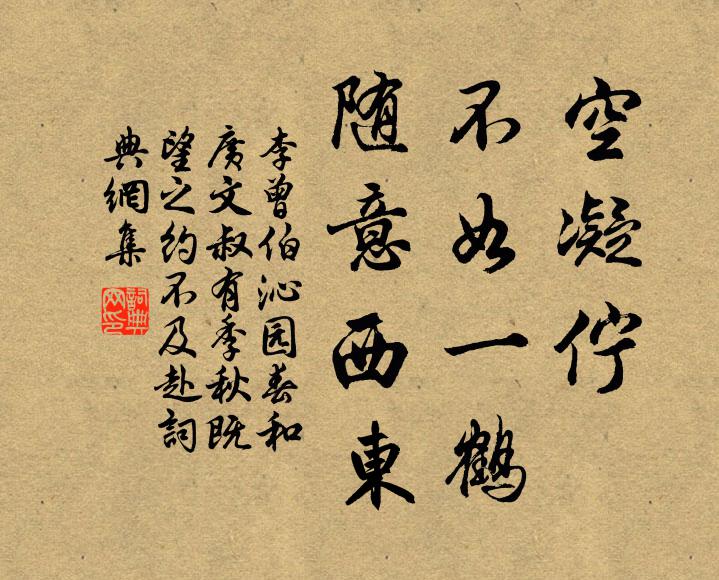 空凝伫
不如一鹤
随意西東
李曾伯沁园春和
广文叔有季秋既
望之约不及赴詞
典網集
詞典网印